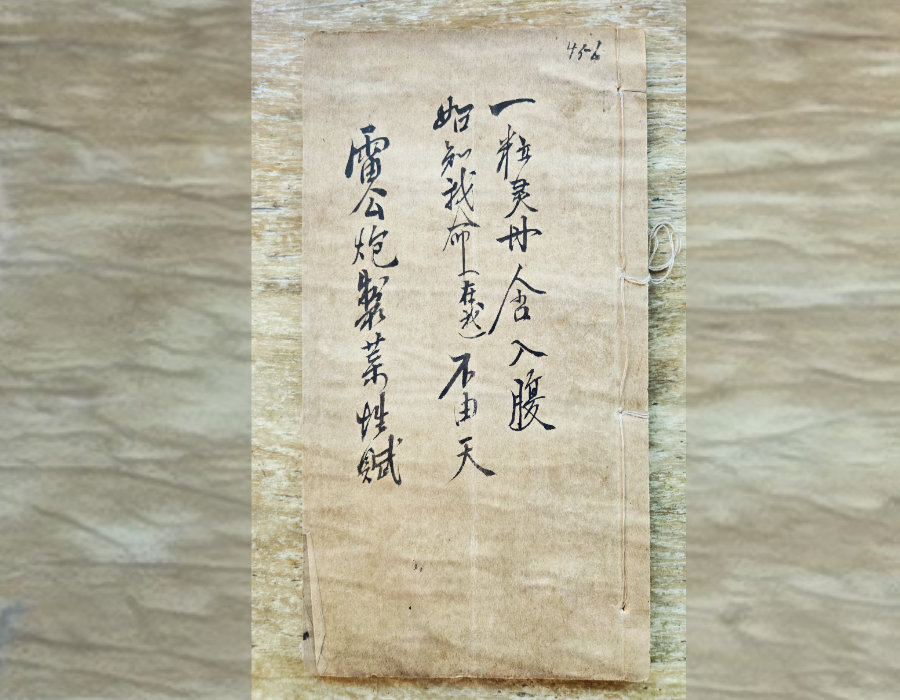 456
一粒灵丹舍入腹
始知我命一在我不由天
雷公炮製药性賦